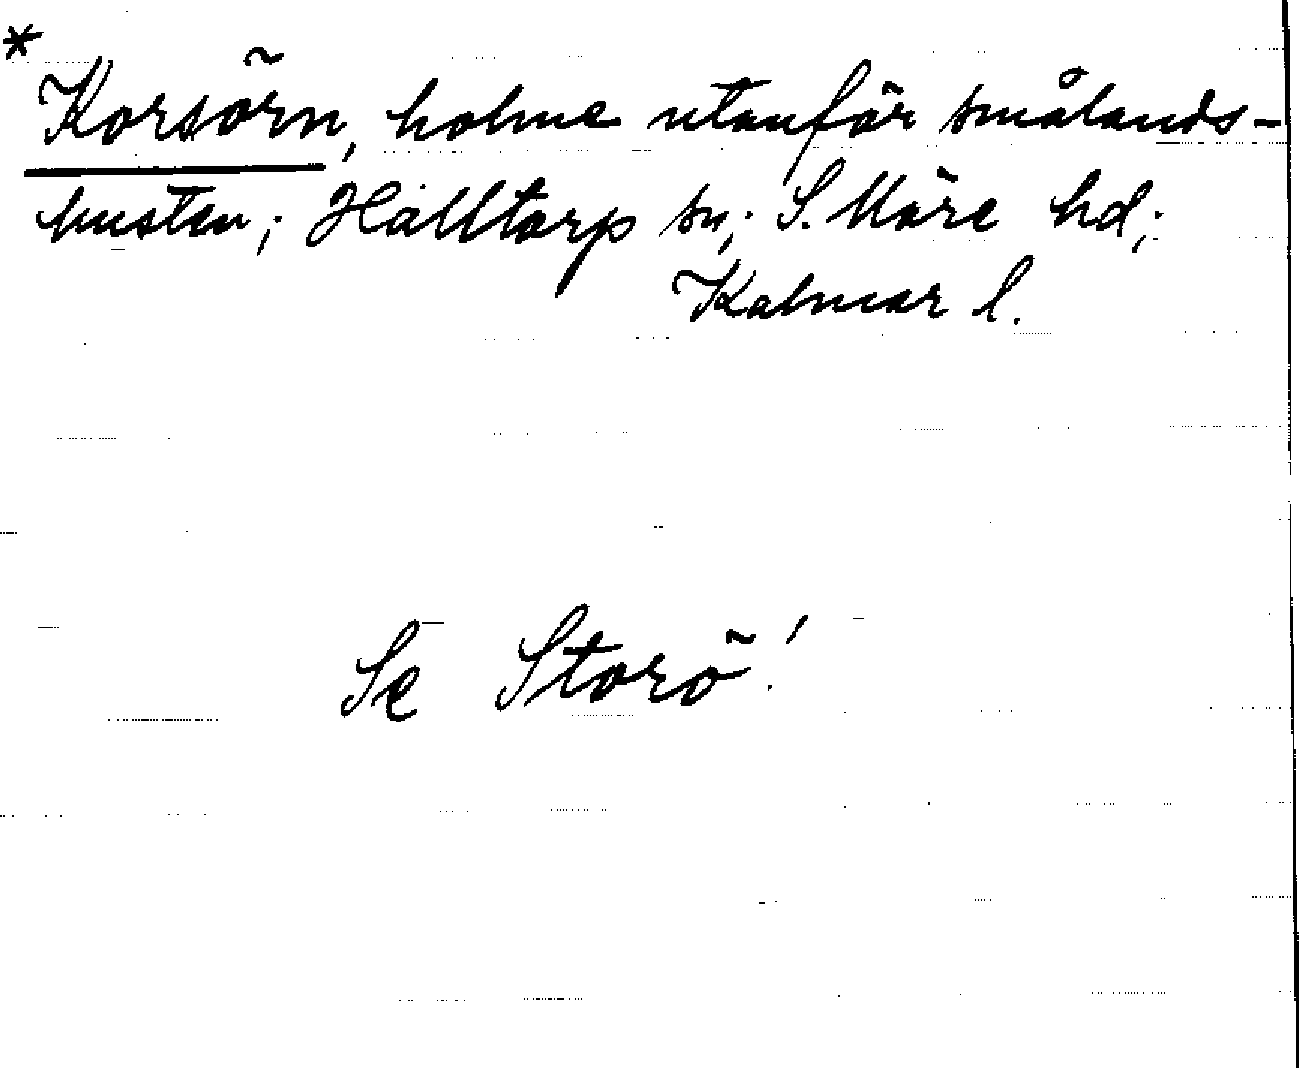 *
Korsörn, holme utanför smålands-
kusten; Halltorp sn; S. Möre hd;
Kalmar l.
Se Storö!